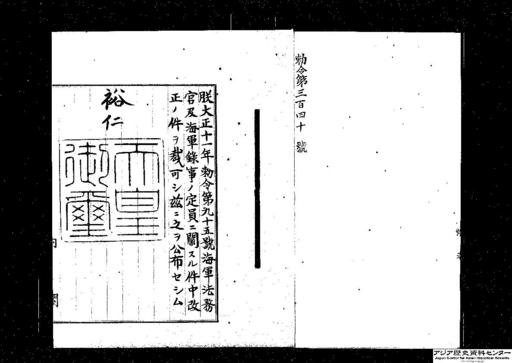 勅令第三百四十號
朕大正十一年勅令第九十五號海軍法務
官及海軍錄事ノ定員ニ關スル件中改
正ノ件ヲ裁可シ茲ニ之ヲ公布セシム
裕仁
天皇
御璽
内
閣
アジア歴史資料センター
Japan Center for Asian Historical Records